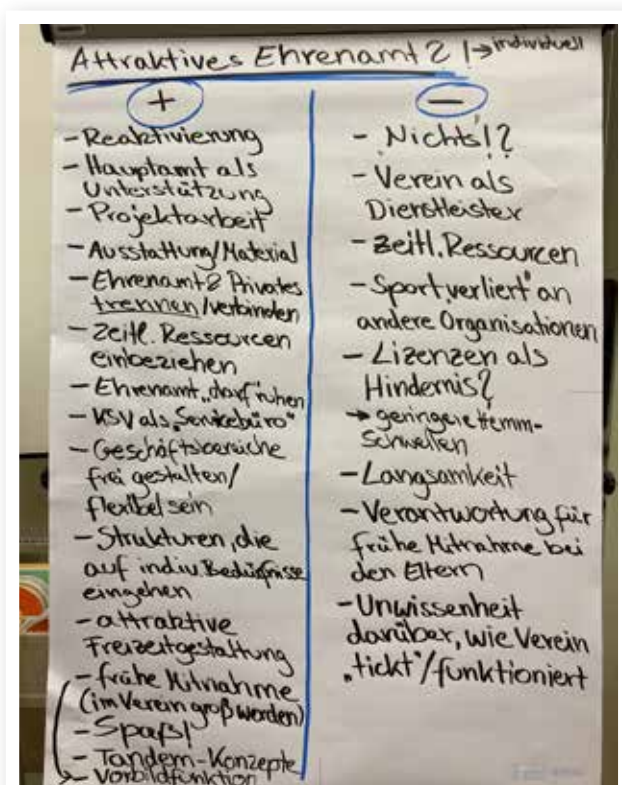 Attraktives Ehrenamt? ! → individuell
+
- Reaktivierung
- Hauptamt als
Unterstützung
- Projektarbeit
- Ausstattung/Material
- Ehrenamt & Privates
trennen/verbinden
- zeitl. Ressourcen
einbeziehen
- Ehrenamt „darf" ruhen
- KSV als „Servicebüro"
- Geschäftsbereiche
frei gestalten/
flexibel sein
- Strukturen, die
auf indiv. Bedürfnisse
eingehen
- attraktive
Freizeitgestaltung
- frühe Mitnahme
(im Verein groß werden)
- Spaß!
- Tandem-Konzepte
→ Vorbildfunktion
-
- Nichts!?
- Verein als
Dienstleister
- zeitl. Ressourcen
- Sport „verliert" an
andere Organisationen
- Lizenzen als
Hindernis?
→ geringere Hemm-
schwellen
- Langsamkeit
- Verantwortung für
frühe Mitnahme bei
den Eltern
- Unwissenheit
darüber, wie Verein
„tickt"/funktioniert